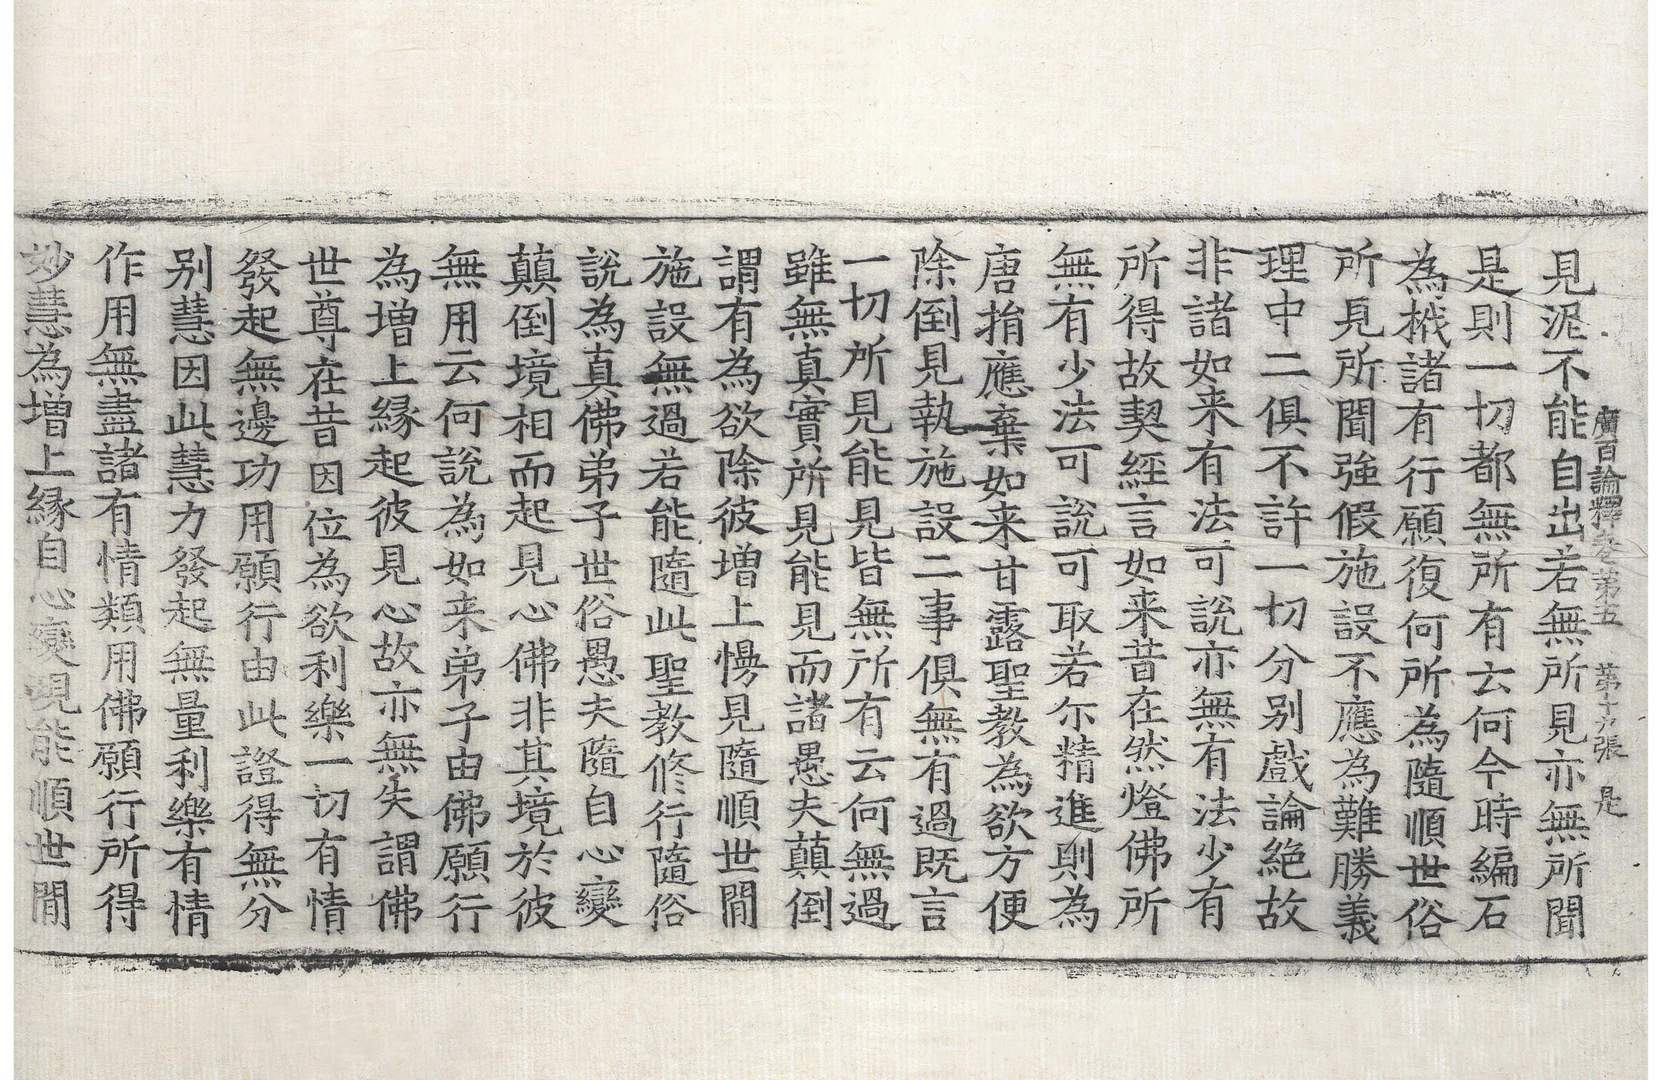 廣百論釋卷苐五　苐十九張　是
見泥不能自出若無所見亦無所聞
是則一切都無所有云何今時編石
為栰諸有行願復何所為隨順世俗
所見所聞強假施設不應為難勝義
理中二俱不許一切分別戲論絶故
非諸如来有法可說亦無有法少有
所得故契經言如来昔在然燈佛所
無有少法可說可取若尓精進則為
唐捐應棄如来甘露聖教為欲方便
除倒見執施設二事俱無有過既言
一切所見能見皆無所有云何無過
雖無真實所見能見而諸愚夫顛倒
謂有為欲除彼增上慢見隨順世閒
施設無過若能隨此聖教修行隨俗
說為真佛弟子世俗愚夫隨自心變
顛倒境相而起見心佛非其境於彼
無用云何說為如来弟子由佛願行
為增上縁起彼見心故亦無失謂佛
世尊在昔因位為欲利樂一切有情
發起無邊功用願行由此證得無分
别慧因此慧力發起無量利樂有情
作用無盡諸有情類用佛願行所得
妙慧為增上縁自心變現能順世閒